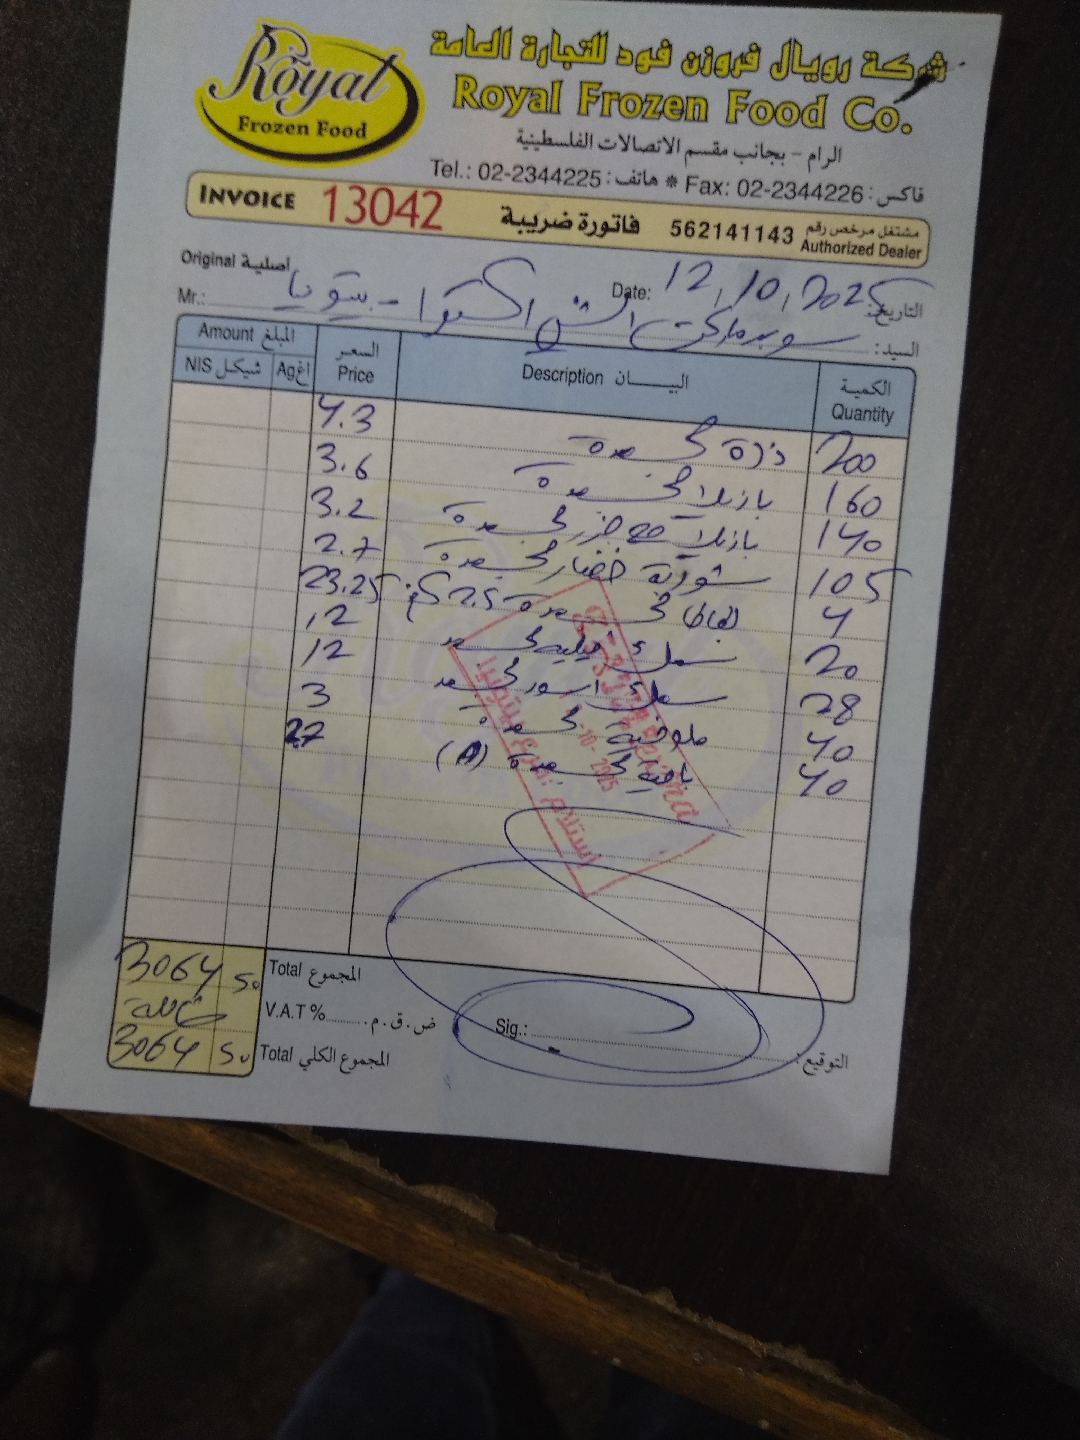 Royal
Frozen Food
شركة رويال فروزن فود للتجارة العامة
Royal Frozen Food Co.
الرام - بجانب مقسم الاتصالات الفلسطينية
Tel.: 02-2344225 : هاتف * Fax: 02-2344226 : فاكس
INVOICE 13042 فاتورة ضريبة 562141143 مشتغل مرخص رقم Authorized Dealer
Original أصلية
Date: 12/10/2025 التاريخ:
Mr.: سوبرماركت - بيتونيا السيد:
Amount المبلغ
NIS شيكل Ag اغ السعر Price البيـــان Description الكمية Quantity
4.3 ذرة مجمدة 200
3.6 بازيلا مجمدة 160
3.2 بازيلا مع جزر مجمدة 140
2.7 شوربة خضار مجمدة 105
23.25 مجمدة 2.5 كغم 4
12 سمك فيليه مجمد 20
12 سمك مجمد 28
3 ملوخية مجمدة 40
2.7 بامية مجمدة (A) 40
3064 50 Total المجموع
شاملة V.A.T % ض.ق.م.
3064 50 Total المجموع الكلي
Sig.: التوقيع:
استلام